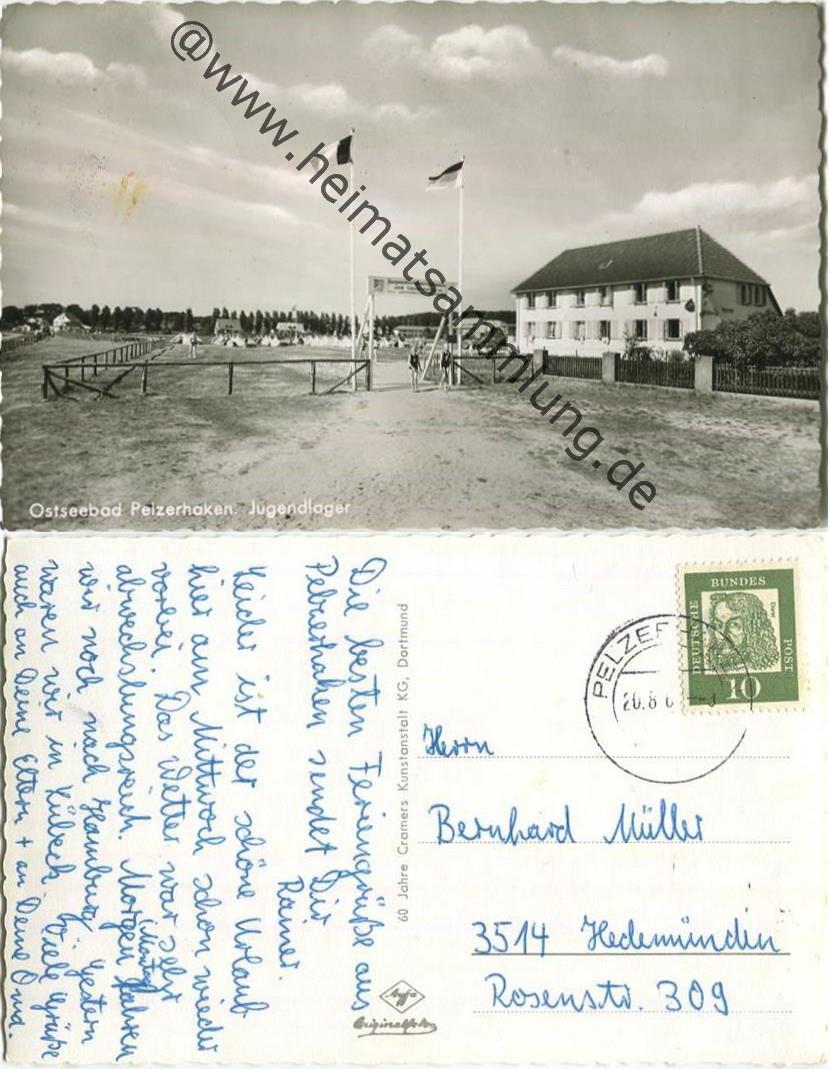 @www.heimatsammlung.de
Ostseebad Pelzerhaken. Jugendlager
Die besten Feriengrüße aus
Pelzerhaken sendet Dir
Rainer.
Leider ist der schöne Urlaub
hier am Mittwoch schon wieder
vorbei. Das Wetter war sehr
abwechslungsreich. Morgen fahren
(Montag)
wir noch nach Hamburg, gestern
waren wir in Lübeck. Viele Grüße
auch an Deine Eltern + an Deine Oma.
60 Jahre Cramers Kunstanstalt KG, Dortmund
Agfa
Originalfoto
DEUTSCHE
BUNDES
POST
Dürer
10
PELZER
20.8.6
Herrn
Bernhard Müller
3514 Hedemünden
Rosenstr. 309